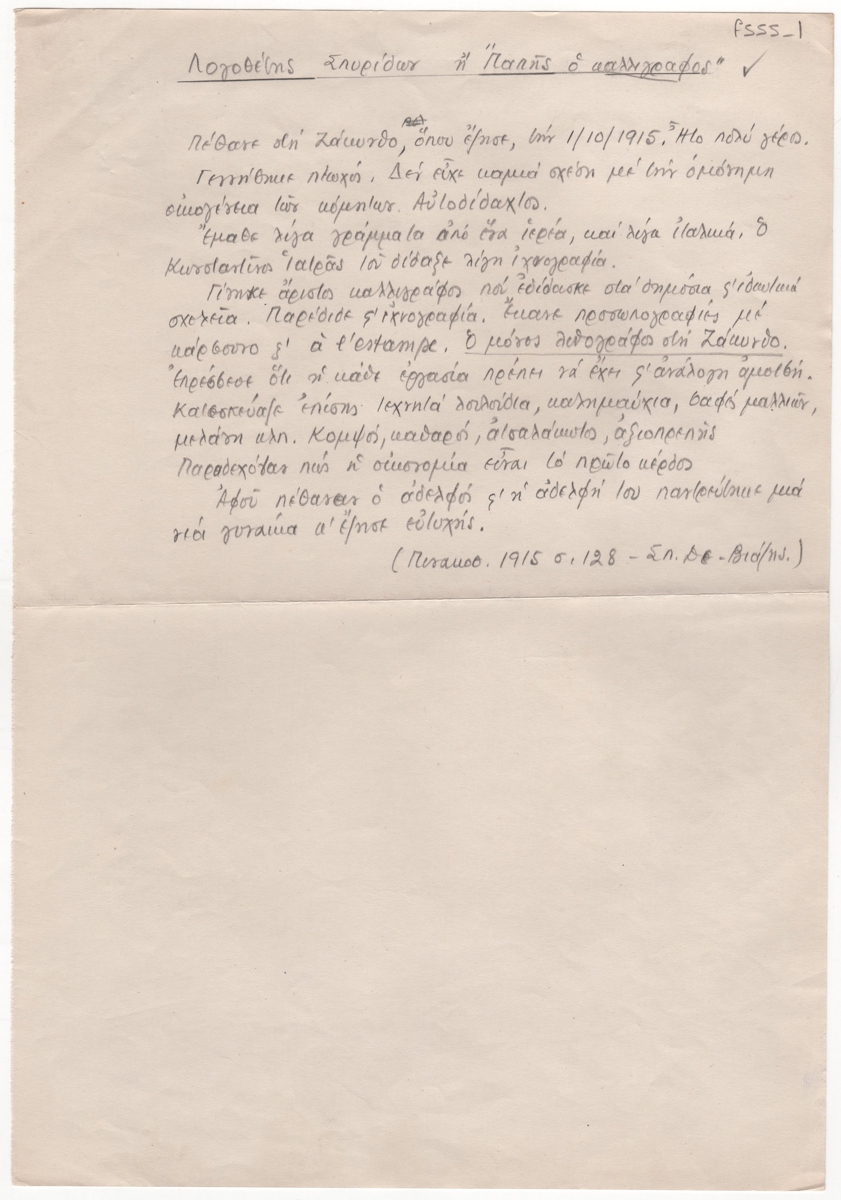 FSSS_1
Λογοθέτης Σπυρίδων ἤ "Παπῆς ὁ καλλιγράφος" ✓
Πέθανε στή Ζάκυνθο, ὅπου ἔζησε, τήν 1/10/1915. Ἦτο πολύ γέρος.
Γεννήθηκε πτωχός. Δέν εἶχε καμιά σχέση μέ τήν ὁμώνημη
οἰκογένεια τῶν κόμητων. Αὐτοδίδακτος.
Ἔμαθε λίγα γράμματα ἀπό ἕνα ἱερέα, καί λίγα ἰταλικά. Ὁ
Κωνσταντῖνος Ἰατρᾶς τοῦ δίδαξε λίγη ἰχνογραφία.
Γίνηκε ἄριστος καλλιγράφος πού ἐδίδασκε στά δημόσια ϛ' ἰδιωτικά
σχολεῖα. Παρέδιδε ϛ' ἰχνογραφία. Ἔκανε προσωπογραφίες μέ
κάρβουνο ϛ' à l'estampe. Ὁ μόνος λιθογράφος στή Ζάκυνθο.
Ἐπρέσβευε ὅτι ἡ κάθε ἐργασία πρέπει νά ἔχει ϛ' ἀνάλογη ἀμοιβή.
Κατεσκεύαζε ἐπίσης τεχνητά λουλούδια, καλημαύχια, βαφές μαλλιῶν,
μελάνη κλπ. Κομψός, καθαρός, ἀτσαλάκωτος, ἀξιοπρεπής
Παραδεχόταν πώς ἡ οἰκονομία εἶναι τό πρῶτο κέρδος
Ἀφοῦ πέθαναν ὁ ἀδελφός ϛ' ἡ ἀδελφή του παντρεύτηκε μιά
νέα γυναίκα κ' ἔζησε εὐτυχής.
(Πινακοθ. 1915 σ. 128 - Σπ. Δε-Βιάζης.)